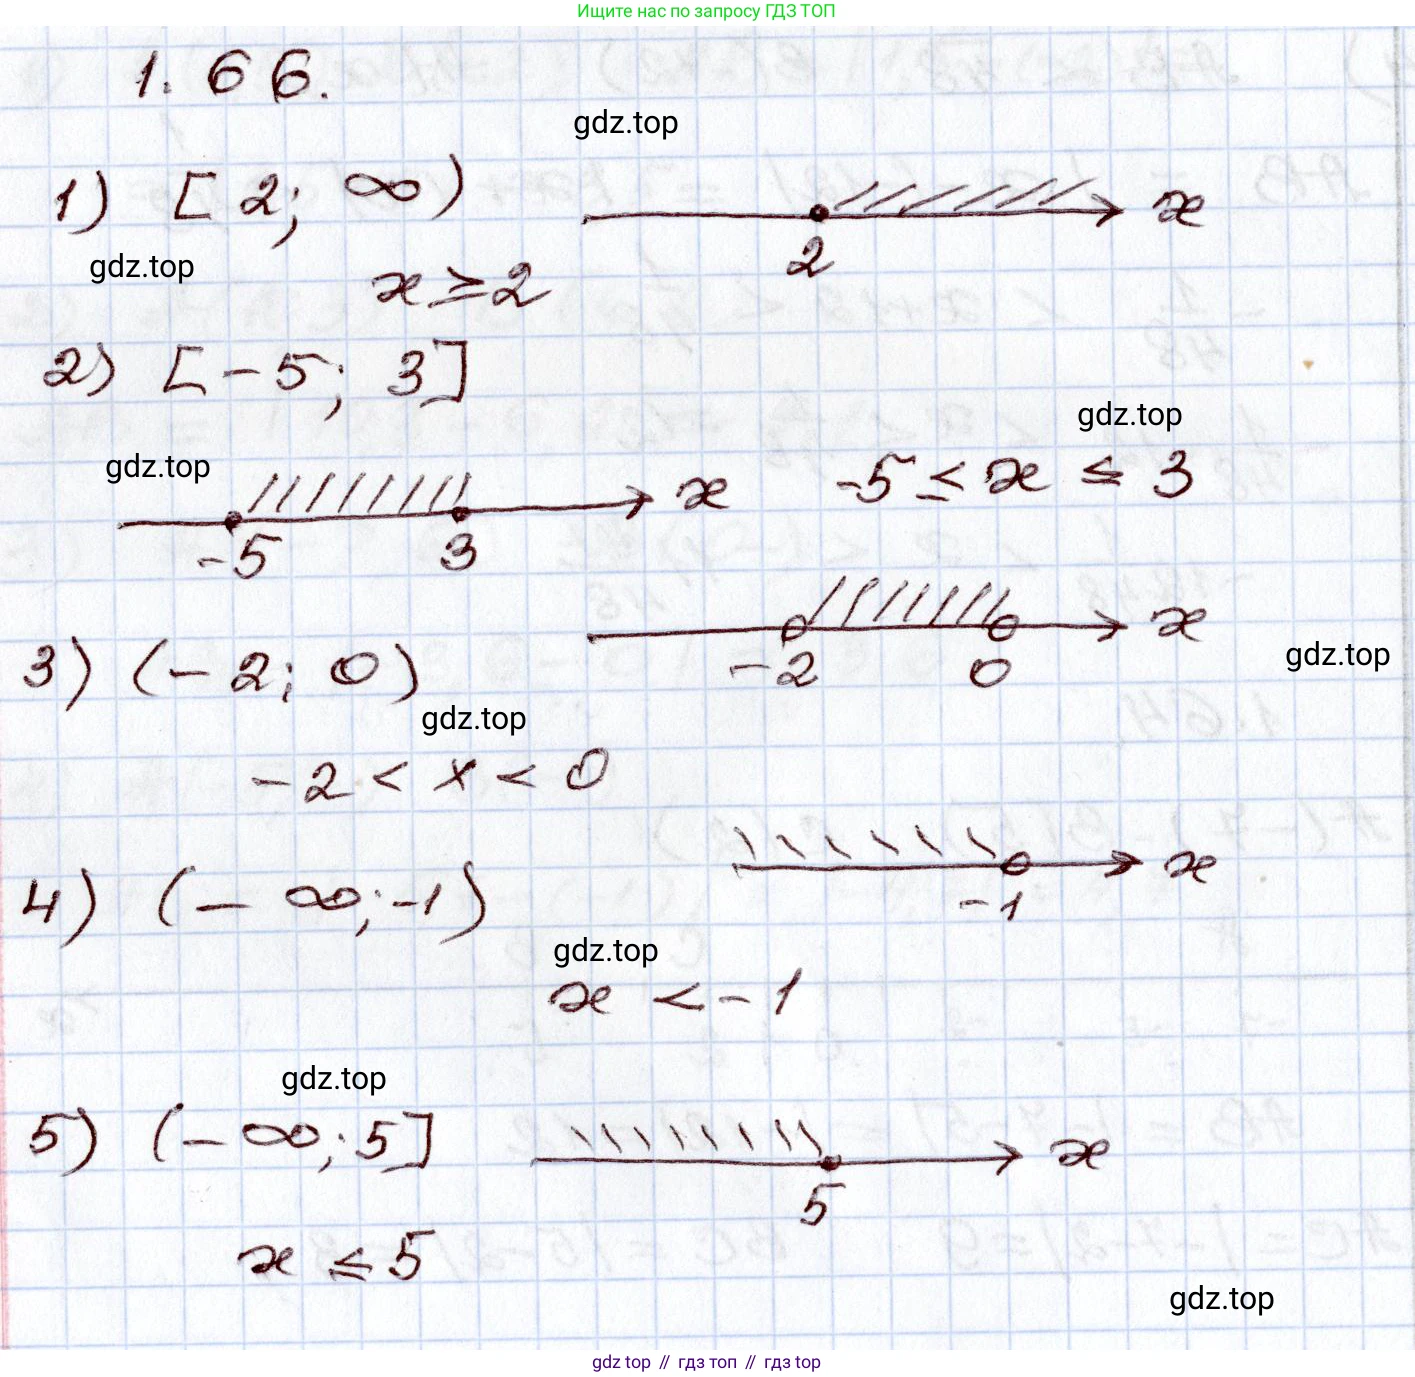 Ищите нас по запросу ГДЗ ТОП
1.66.
gdz.top
1) [2; ∞)
x
2
gdz.top
x ≥ 2
2) [-5; 3]
gdz.top
gdz.top
x
-5 ≤ x ≤ 3
-5 3
x
-2 0
3) (-2; 0)
gdz.top
gdz.top
-2 < x < 0
x
-1
4) (-∞; -1)
gdz.top
x < -1
gdz.top
5) (-∞; 5]
x
5
x ≤ 5
gdz.top
gdz top // гдз топ // gdz top